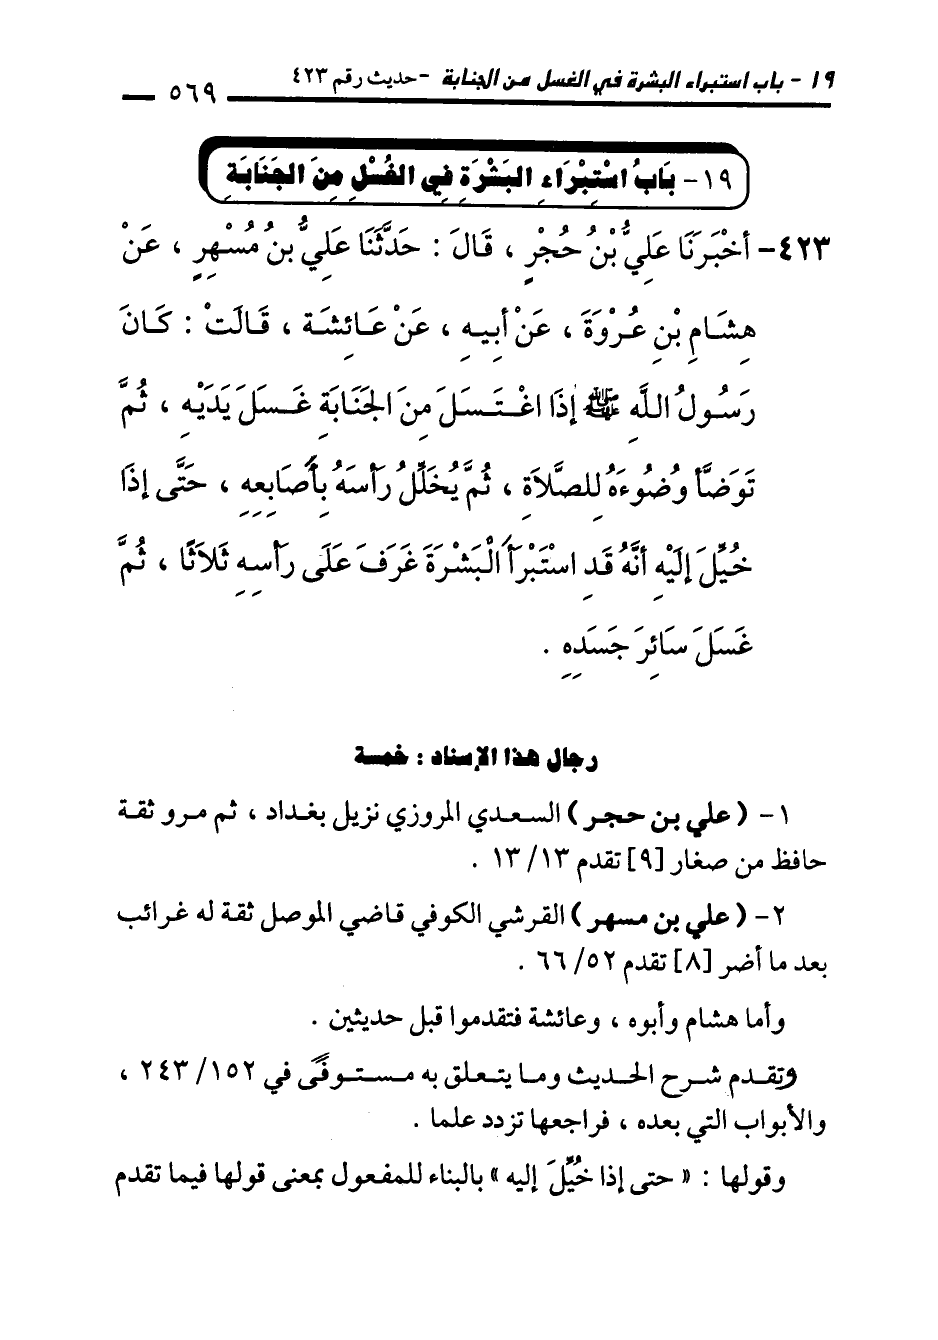 ١٩ - باب استبراء البشرة في الغسل من الجنابة - حديث رقم ٤٢٣
٥٦٩
١٩- بَابُ اسْتِبْرَاءِ البَشْرَةِ فِي الغُسْلِ مِنَ الجَنَابَةِ
٤٢٣- أخْبَرَنَا عَلِيُّ بْنُ حُجْرٍ ، قَالَ : حَدَّثَنَا عَلِيُّ بنُ مُسْهِرٍ ، عَنْ
هِشَامِ بْنِ عُرْوَةَ ، عَنْ أبِيهِ ، عَنْ عَائِشَة ، قَالَتْ : كَانَ
رَسُولُ اللَّهِ ﷺ إذَا اغْتَسَلَ مِنَ الجَنَابَةِ غَسَلَ يَدَيْهِ ، ثُمَّ
تَوَضَّأ وُضُوءَهُ لِلصَّلاَةِ ، ثُمَّ يُخَلِّلُ رَأسَهُ بِأصَابِعِهِ ، حَتَّى إذَا
خُيِّلَ إلَيْهِ أنَّهُ قَدِ اسْتَبْرَأ الْبَشْرَةَ غَرَفَ عَلَى رَأسِهِ ثَلاَثًا ، ثُمَّ
غَسَلَ سَائِرَ جَسَدِهِ .
رجال هذا الإسناد : خمسة
١- ( علي بن حجر ) السعدي المروزي نزيل بغداد ، ثم مرو ثقة
حافظ من صغار [٩] تقدم ١٣/ ١٣ .
٢- ( علي بن مسهر ) القرشي الكوفي قاضي الموصل ثقة له غرائب
بعد ما أضر [٨] تقدم ٥٢/ ٦٦ .
وأما هشام وأبوه ، وعائشة فتقدموا قبل حديثين .
وتقدم شرح الحديث وما يتعلق به مستوفًى في ١٥٢/ ٢٤٣ ،
والأبواب التي بعده ، فراجعها تزدد علما .
وقولها : « حتى إذا خُيِّلَ إليه » بالبناء للمفعول بمعنى قولها فيما تقدم